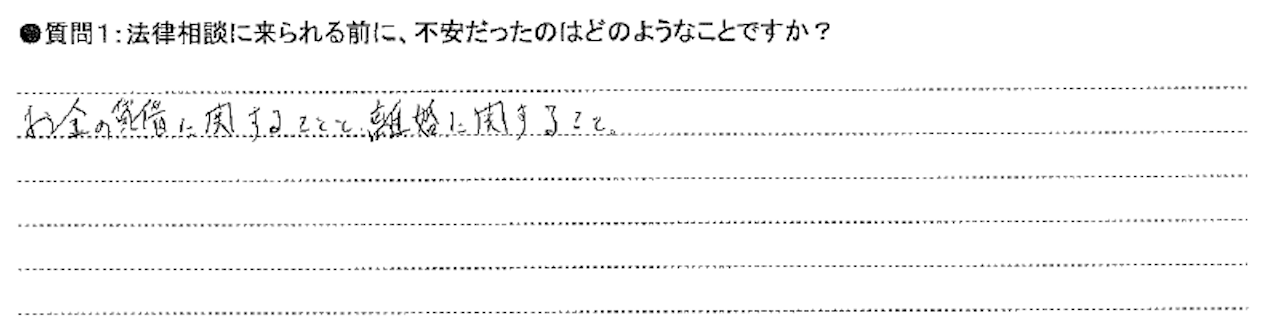 ●質問1:法律相談に来られる前に、不安だったのはどのようなことですか?
お金の貸借に関することと、離婚に関すること。